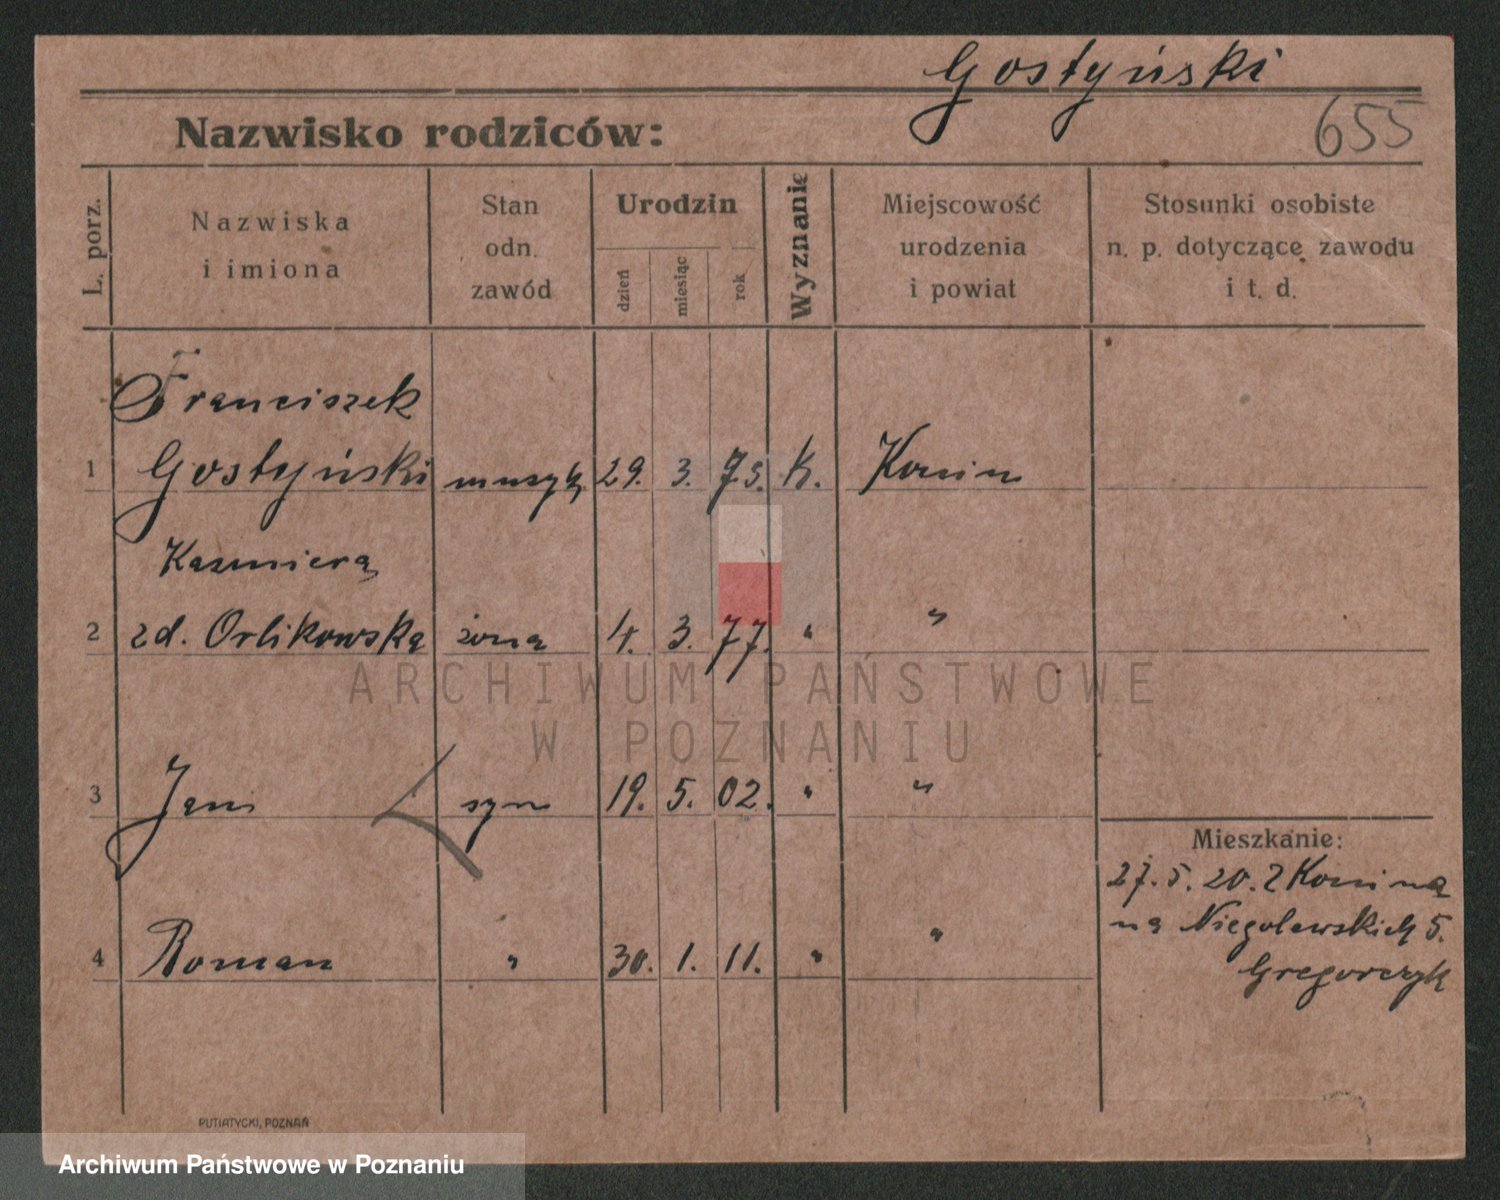 Gostyński
655
Nazwisko rodziców:
L. porz.
Nazwiska
i imiona
Stan
odn.
zawód
Urodzin
dzień
miesiąc
rok
Wyznanie
Miejscowość
urodzenia
i powiat
Stosunki osobiste
n. p. dotyczące zawodu
i t. d.
Franciszek
1 Gostyński muzyk 29. 3. 73. K. Konin
Kazimiera
2 zd. Orlikowska żona 4. 3. 77. " "
ARCHIWUM PAŃSTWOWE
W POZNANIU
3 Jan syn 19. 5. 02. " "
Mieszkanie:
27. 5. 20. z Konina
na Niegolewskich 5.
Gregorczyk
4 Roman " 30. 1. 11. " "
PUTIATYCKI, POZNAŃ
Archiwum Państwowe w Poznaniu